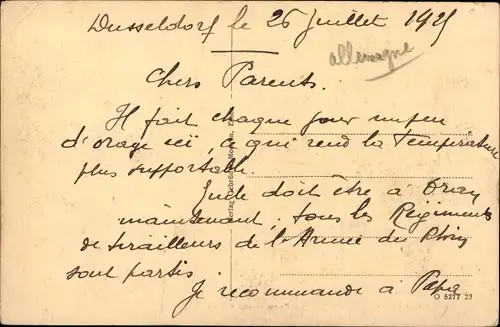 Dusseldorf le 26 Juillet 1925
allemagne
Chers Parents.
Il fait chaque jour un peu
d'orage ici, ce qui rend la Température
plus supportable.
doit être à Oran
maintenant, tous les Régiments
de tirailleurs de l'Armée du Rhin
sont partis
Je recommande à Papa
O 5217 23